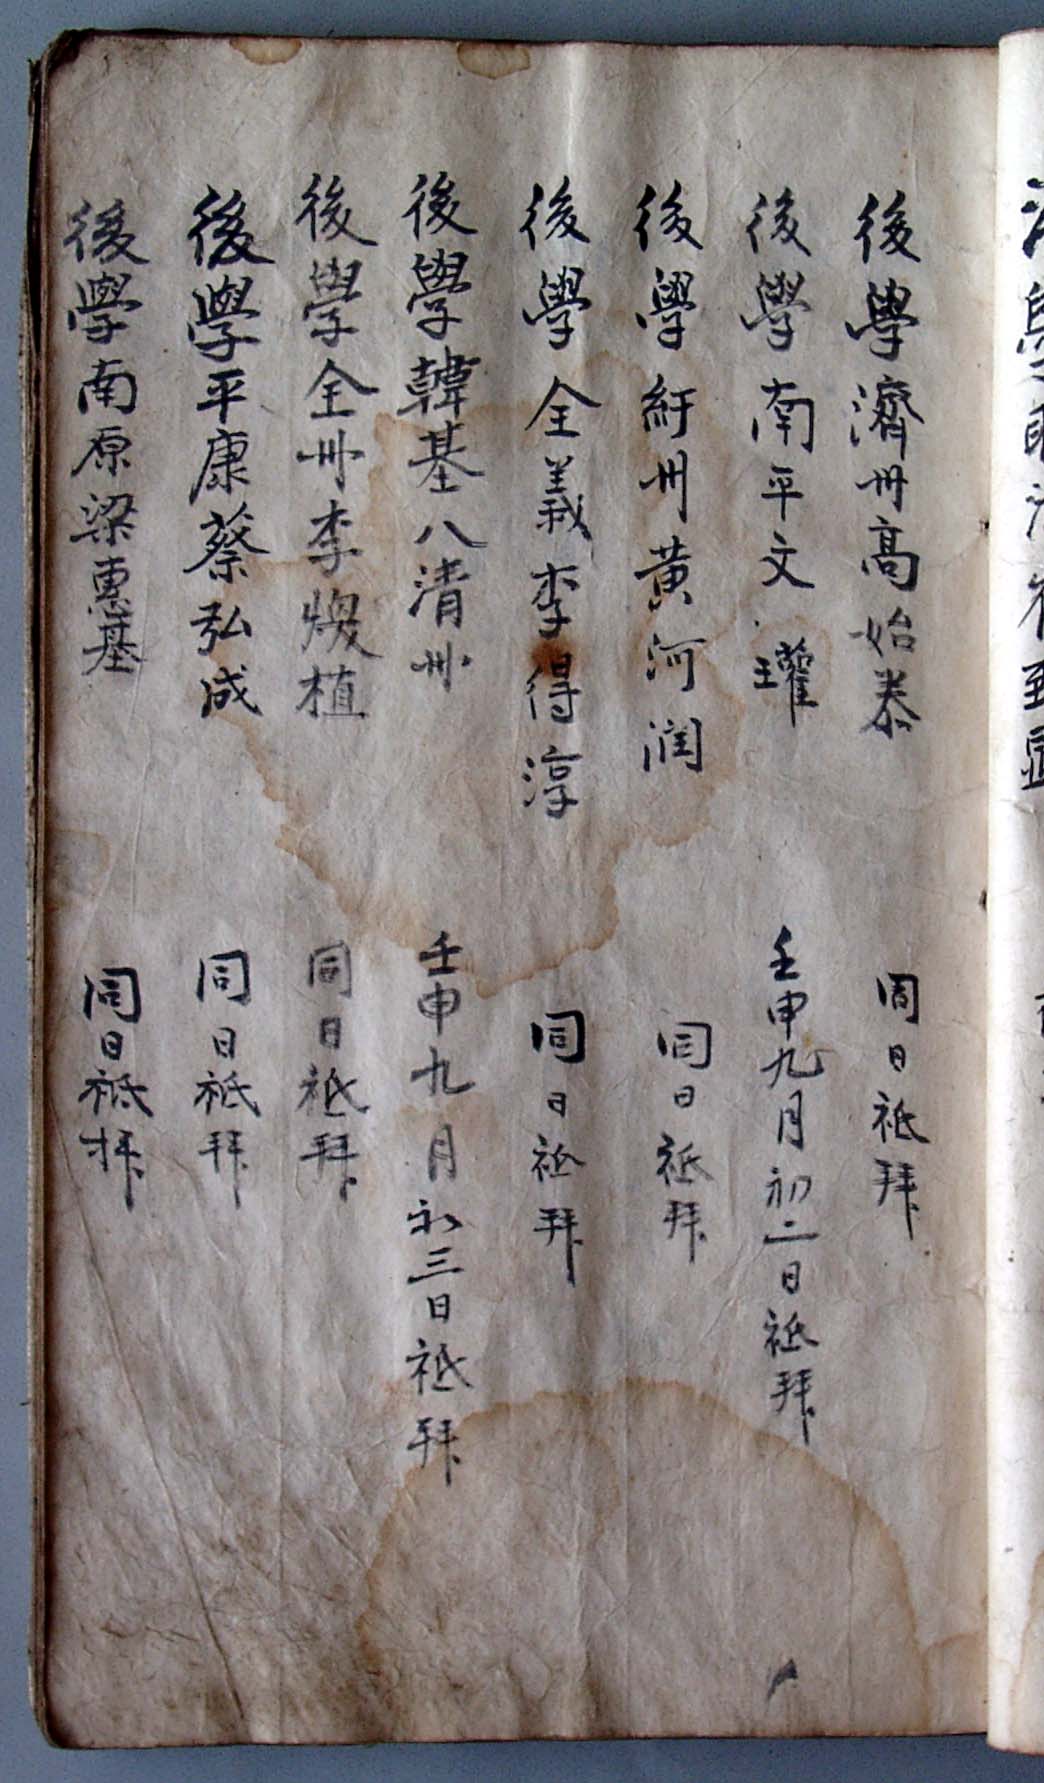 後學濟州高始泰 同日祗拜
後學南平文瓘 壬申九月初二日祗拜
後學紆州黃河潤 同日祗拜
後學全義李得淳 同日祗拜
後學韓基八淸州 壬申九月初三日祗拜
後學全州李煥植 同日祗拜
後學平康蔡弘成 同日祗拜
後學南原梁惠基 同日祗拜